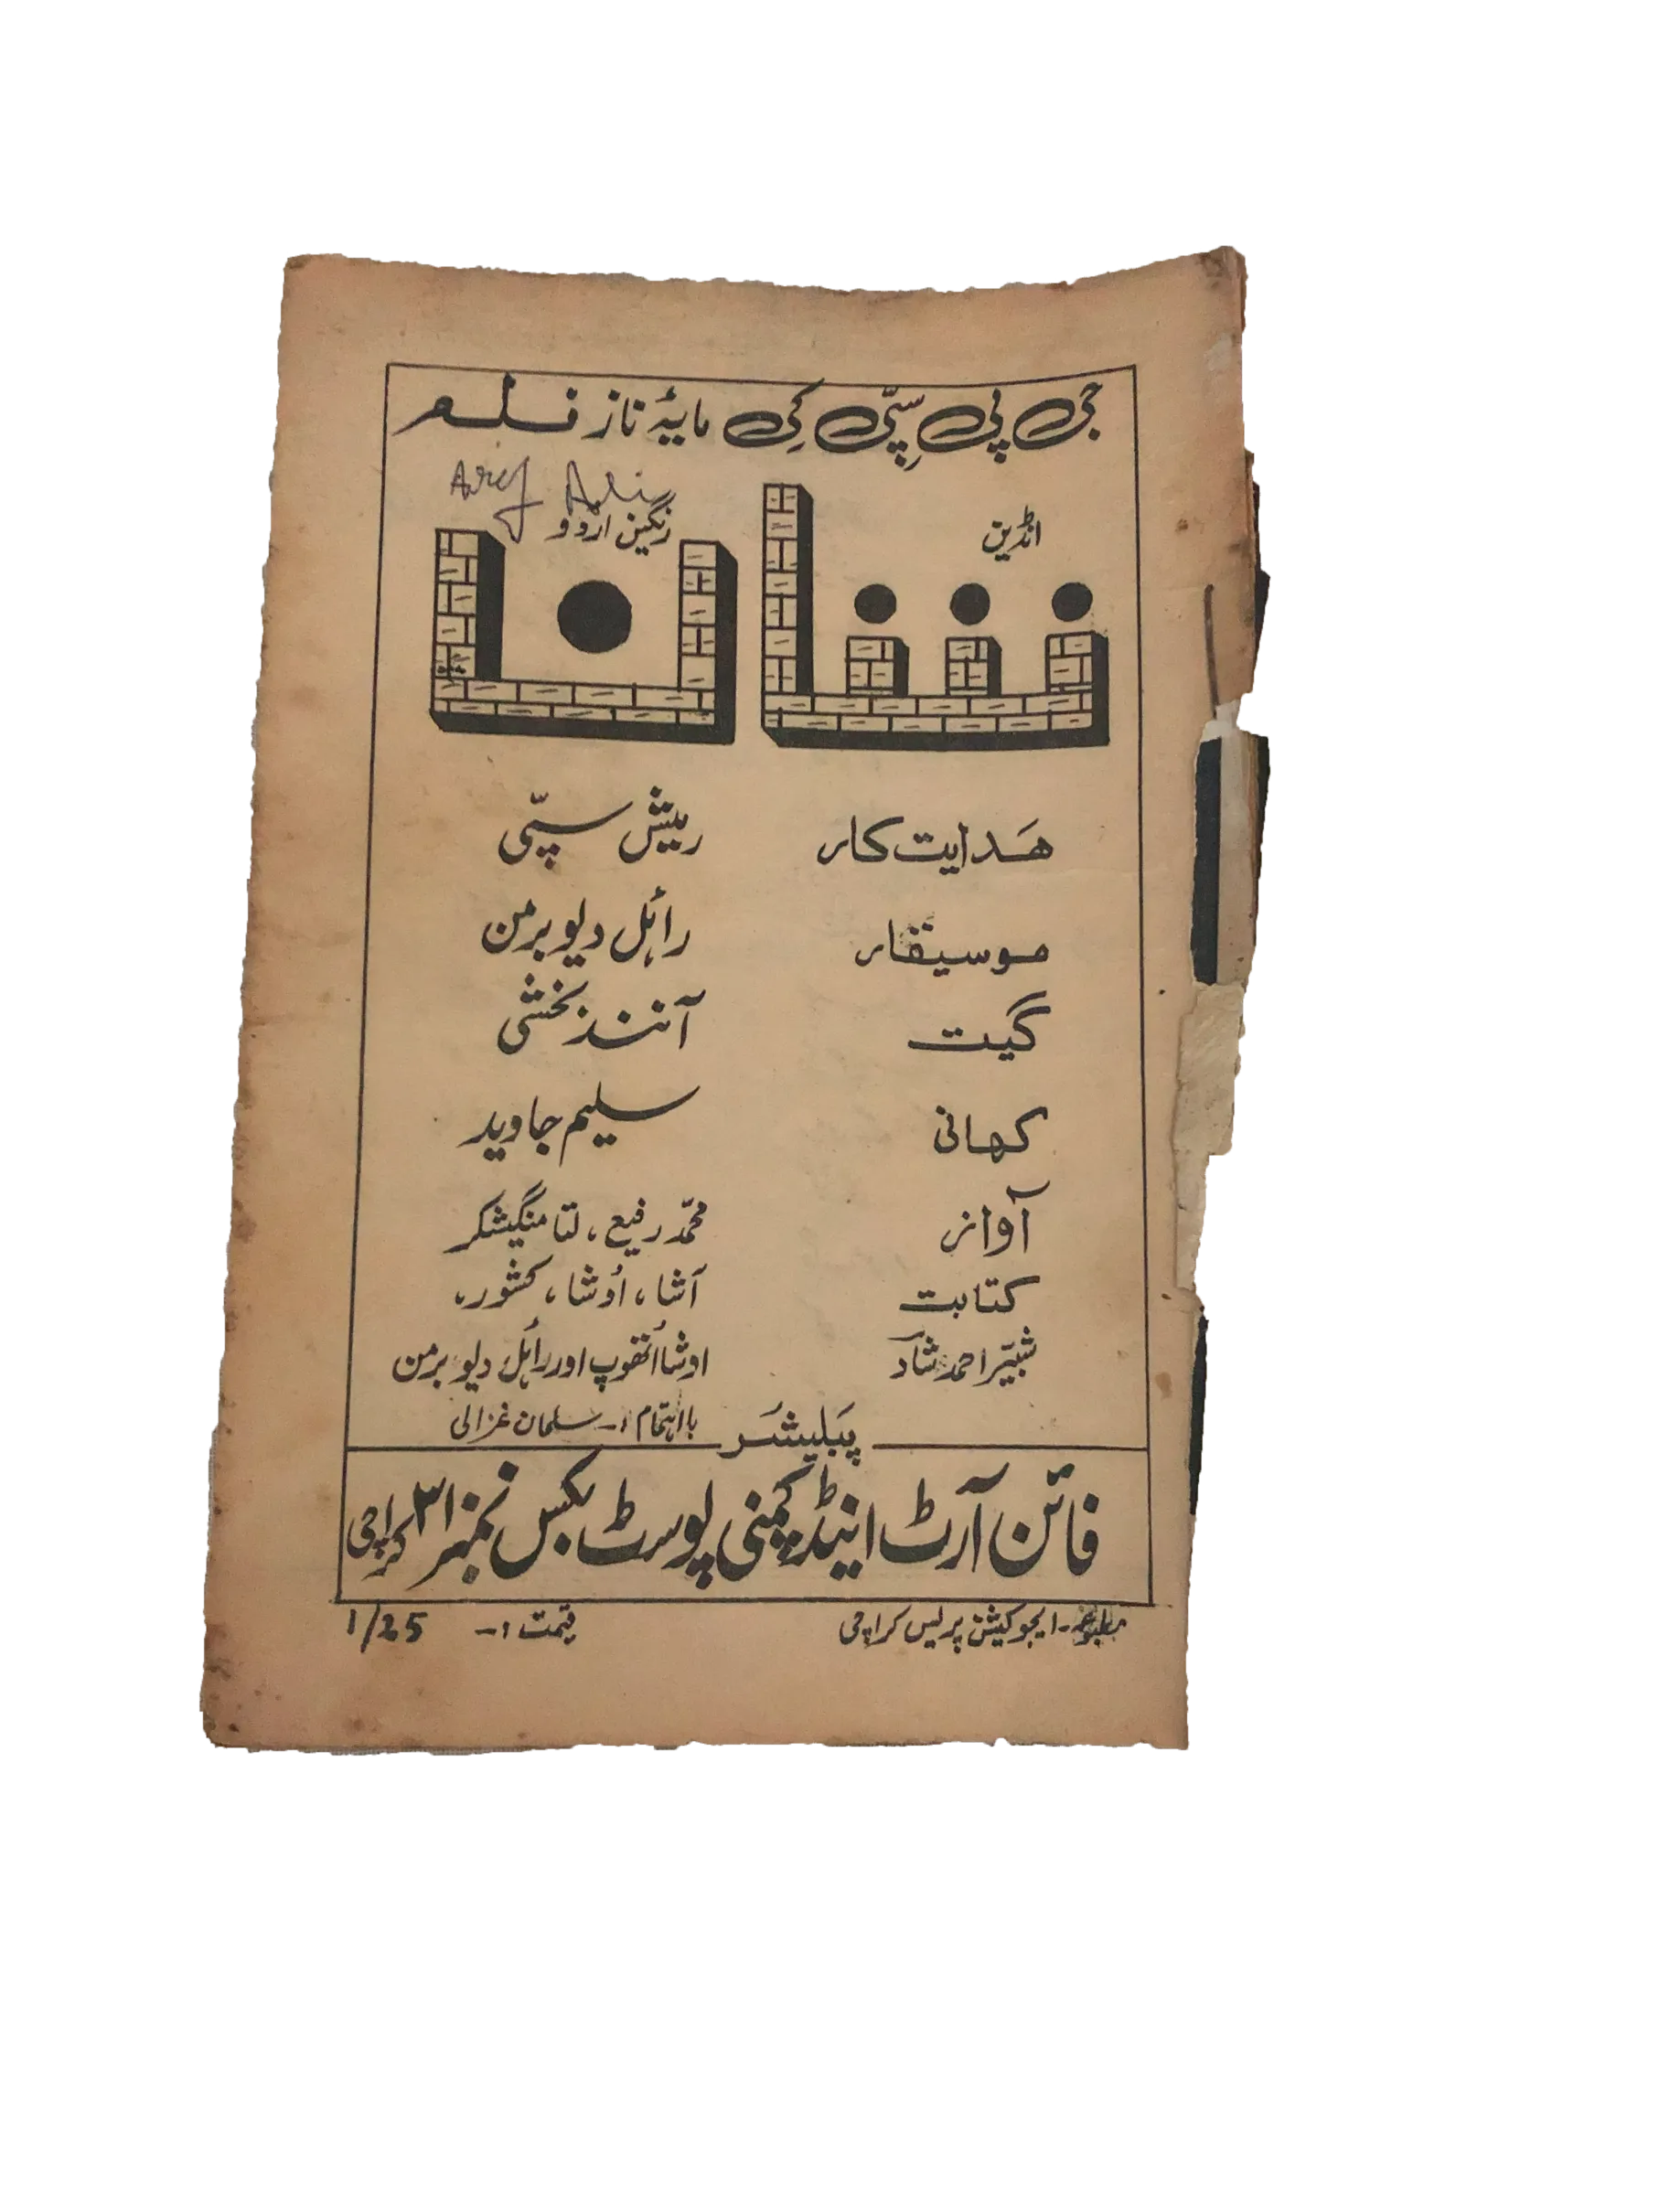 جی پی سپّی کی مایۂ ناز فلم
Aref Ali
انڈین
رنگین اردو
شان
ھدایت کار رمیش سپّی
موسیقار راہُل دیو برمن
گیت آنند بخشی
کہانی سلیم جاوید
آواز محمّد رفیع، لتا منگیشکر
کتابت آشا، اُوشا، کشور،
شبیّر احمد شاد اوشا اُتھوپ اور راہُل دیو برمن
بااہتمام :- سلمان غزالی
پبلیشر
فائن آرٹ اینڈ کمپنی پوسٹ بکس نمبر ۳۱ کراچی
مطبوعہ - ایجوکیشن پریس کراچی قیمت :- 1/25